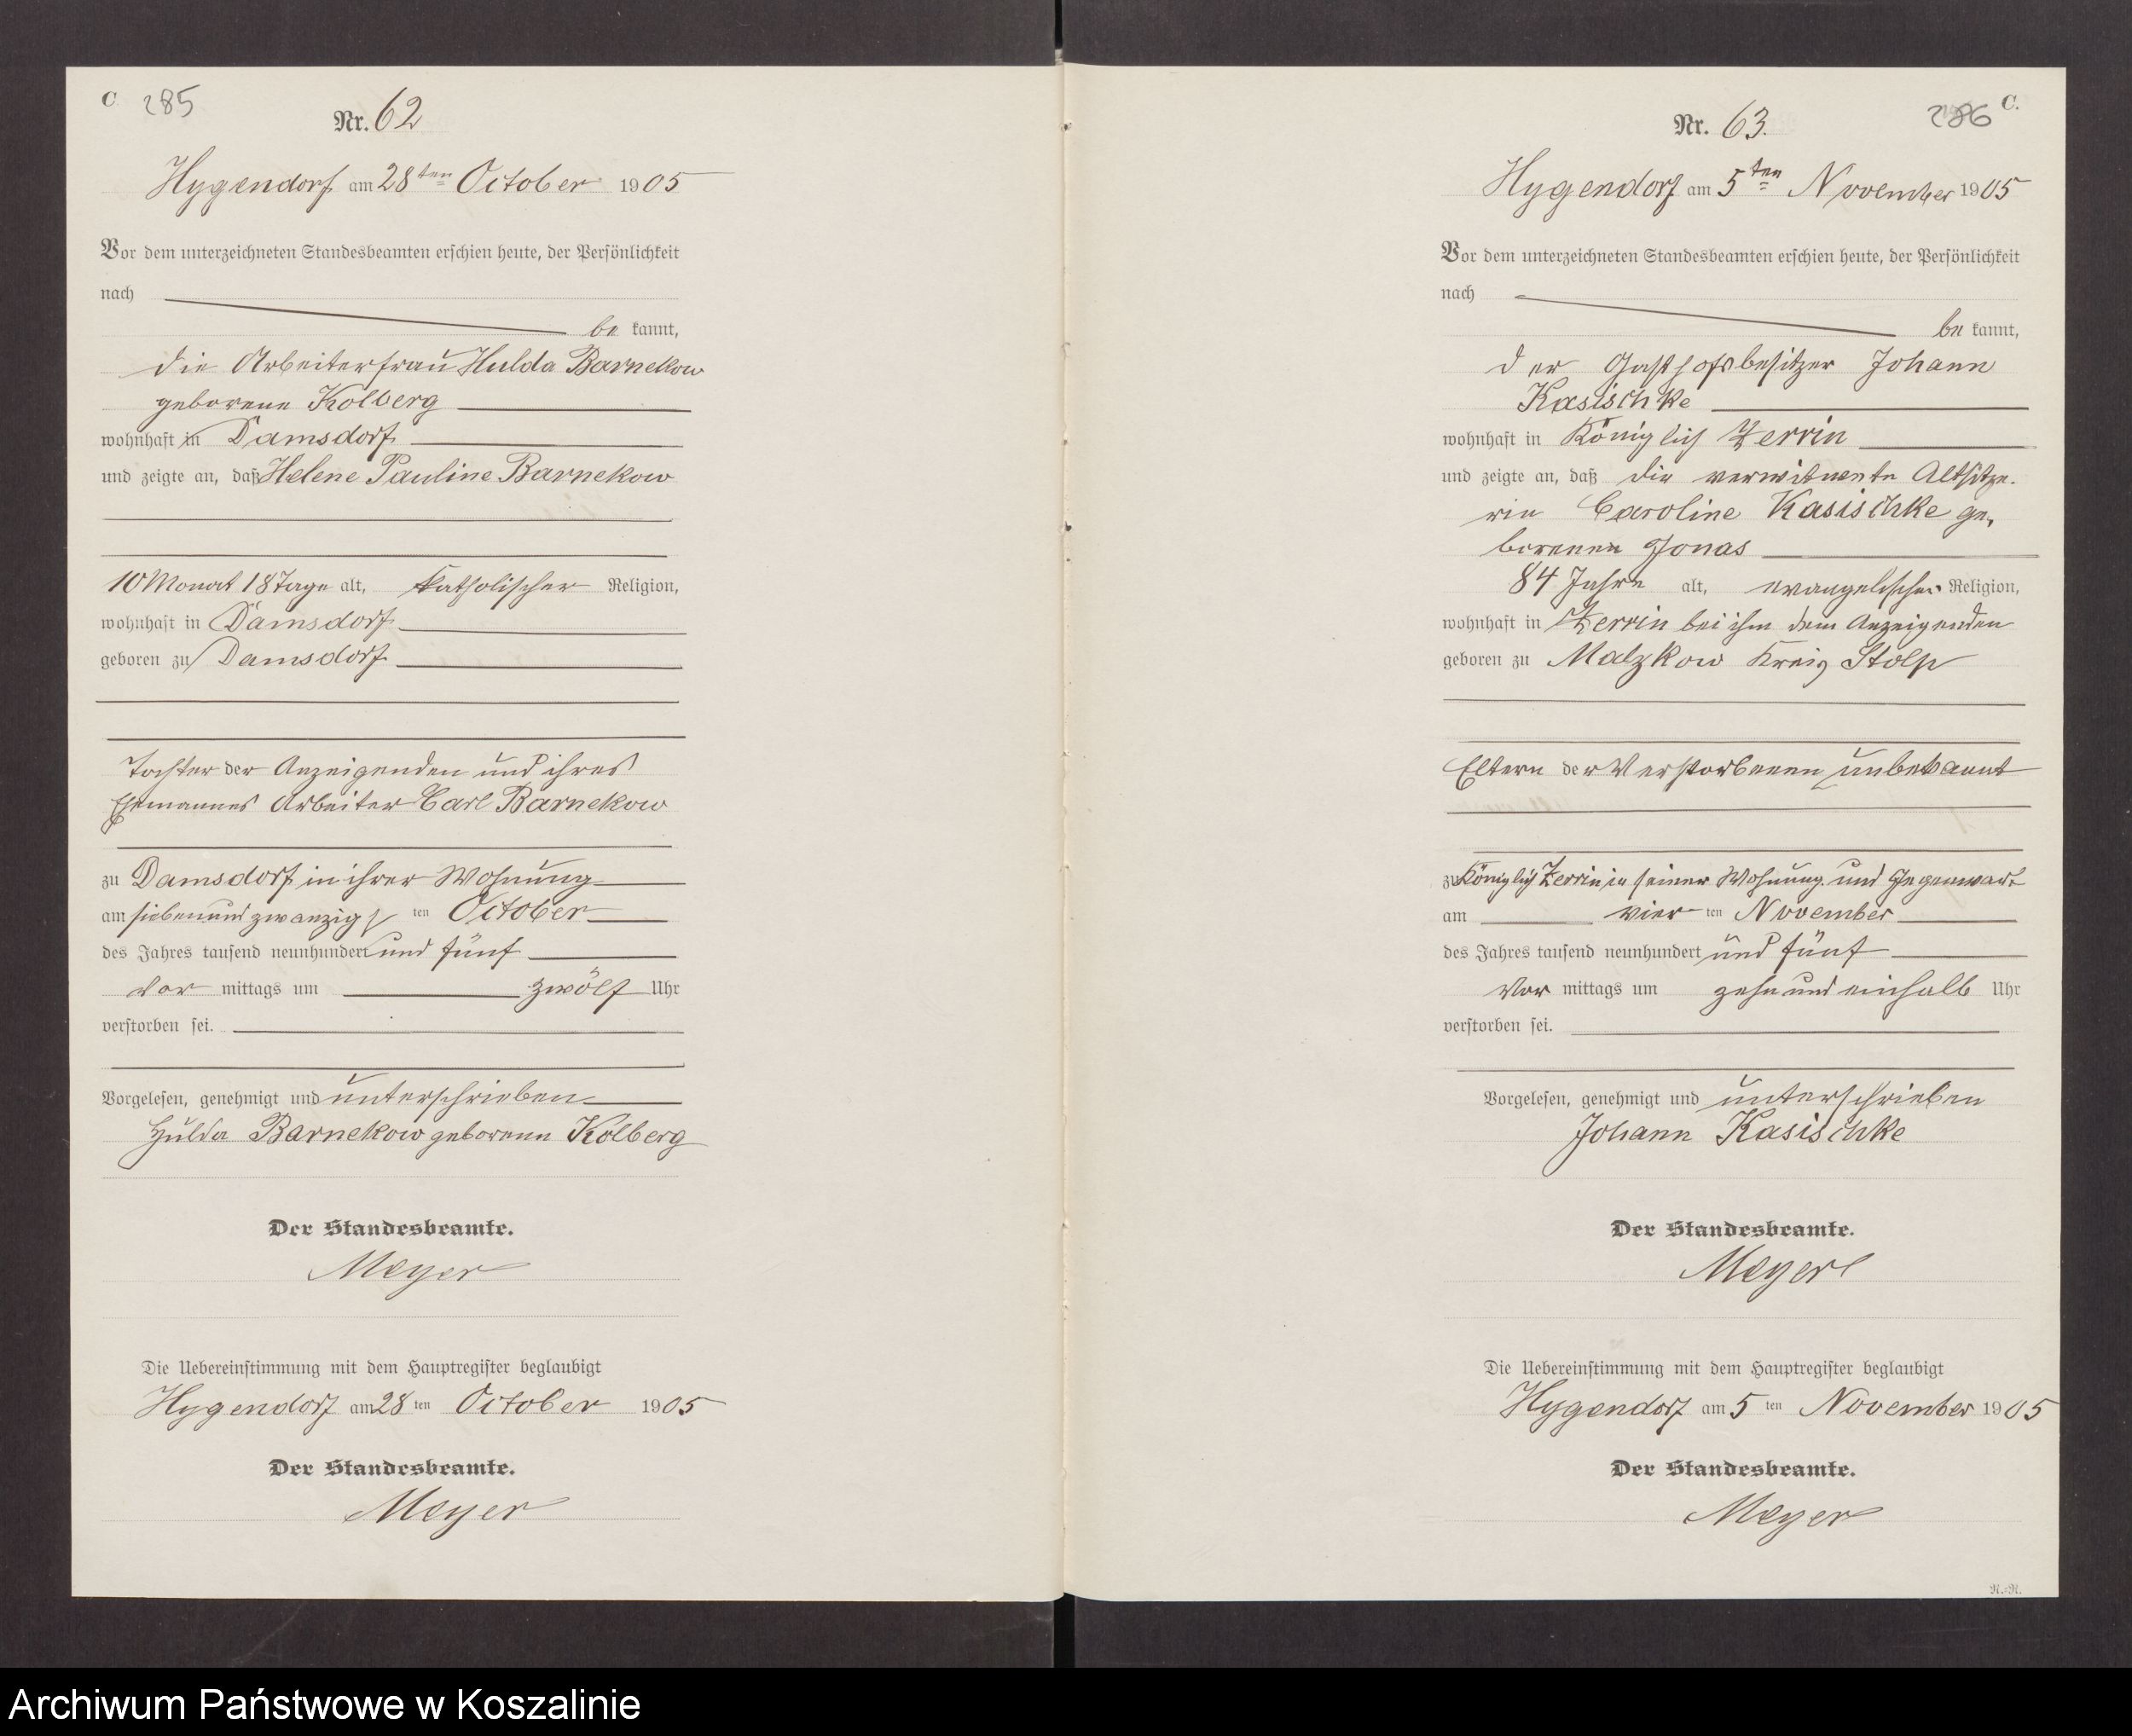 C 285
Nr. 62
Hygendorf am 28ten October 1905
Vor dem unterzeichneten Standesbeamten erschien heute, der Persönlichkeit
nach
be kannt,
die Arbeiterfrau Hulda Barnekow
geborene Kolberg
wohnhaft in Damsdorf
und zeigte an, daß Helene Pauline Barnekow
10 Monat 18 Tage alt, katholischer Religion,
wohnhaft in Damsdorf
geboren zu Damsdorf
Tochter der Anzeigenden und ihres
Ehemannes Arbeiter Carl Barnekow
zu Damsdorf in ihrer Wohnung
am siebenundzwanzigsten October
des Jahres tausend neunhundert und fünf
vor mittags um zwölf Uhr
verstorben sei.
Vorgelesen, genehmigt und unterschrieben
Hulda Barnekow geborene Kolberg
Der Standesbeamte.
Meyer
Die Uebereinstimmung mit dem Hauptregister beglaubigt
Hygendorf am 28 ten October 1905
Der Standesbeamte.
Meyer
286 C.
Nr. 63.
Hygendorf am 5ten November 1905
Vor dem unterzeichneten Standesbeamten erschien heute, der Persönlichkeit
nach
be kannt,
der Gasthofsbesitzer Johann
Kasischke
wohnhaft in Königlich Zerrin
und zeigte an, daß die verwitwente Altsitze-
rin Caroline Kasischke ge-
borenen Jonas
84 Jahre alt, evangelischer Religion,
wohnhaft in Zerrin bei ihm dem Anzeigenden
geboren zu Malzkow Kreis Stolp
Eltern der Verstorbenen unbekannt
zu Königlich Zerrin in seiner Wohnung und Gegenwart
am vier ten November
des Jahres tausend neunhundert und fünf
Vor mittags um zehn und einhalb Uhr
verstorben sei.
Vorgelesen, genehmigt und unterschrieben
Johann Kasischke
Der Standesbeamte.
Meyer
Die Uebereinstimmung mit dem Hauptregister beglaubigt
Hygendorf am 5 ten November 1905
Der Standesbeamte.
Meyer
N.-N.
Archiwum Państwowe w Koszalinie